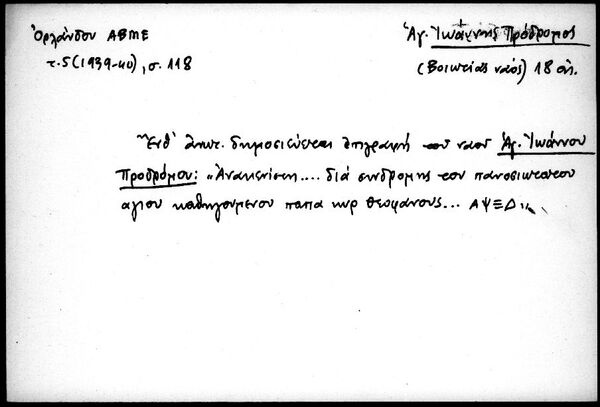 Ὀρλάνδου ΑΒΜΕ
τ.5(1939-40), σ. 118
Ἁγ. Ἰωάννης Πρόδρομος
(Βοιωτίας ναός) 18 αἰ.
Ἔνθ' ἀνωτ. δημοσιεύεται ἐπιγραφή τοῦ ναοῦ Ἁγ. Ἰωάννου
Προδρόμου: "Ἀνακενίσθη.... διά συνδρομης του πανοσιωτατου
αγιου καθηγουμενου παπα κυρ θεοφάνους... ΑΨΞΔ"